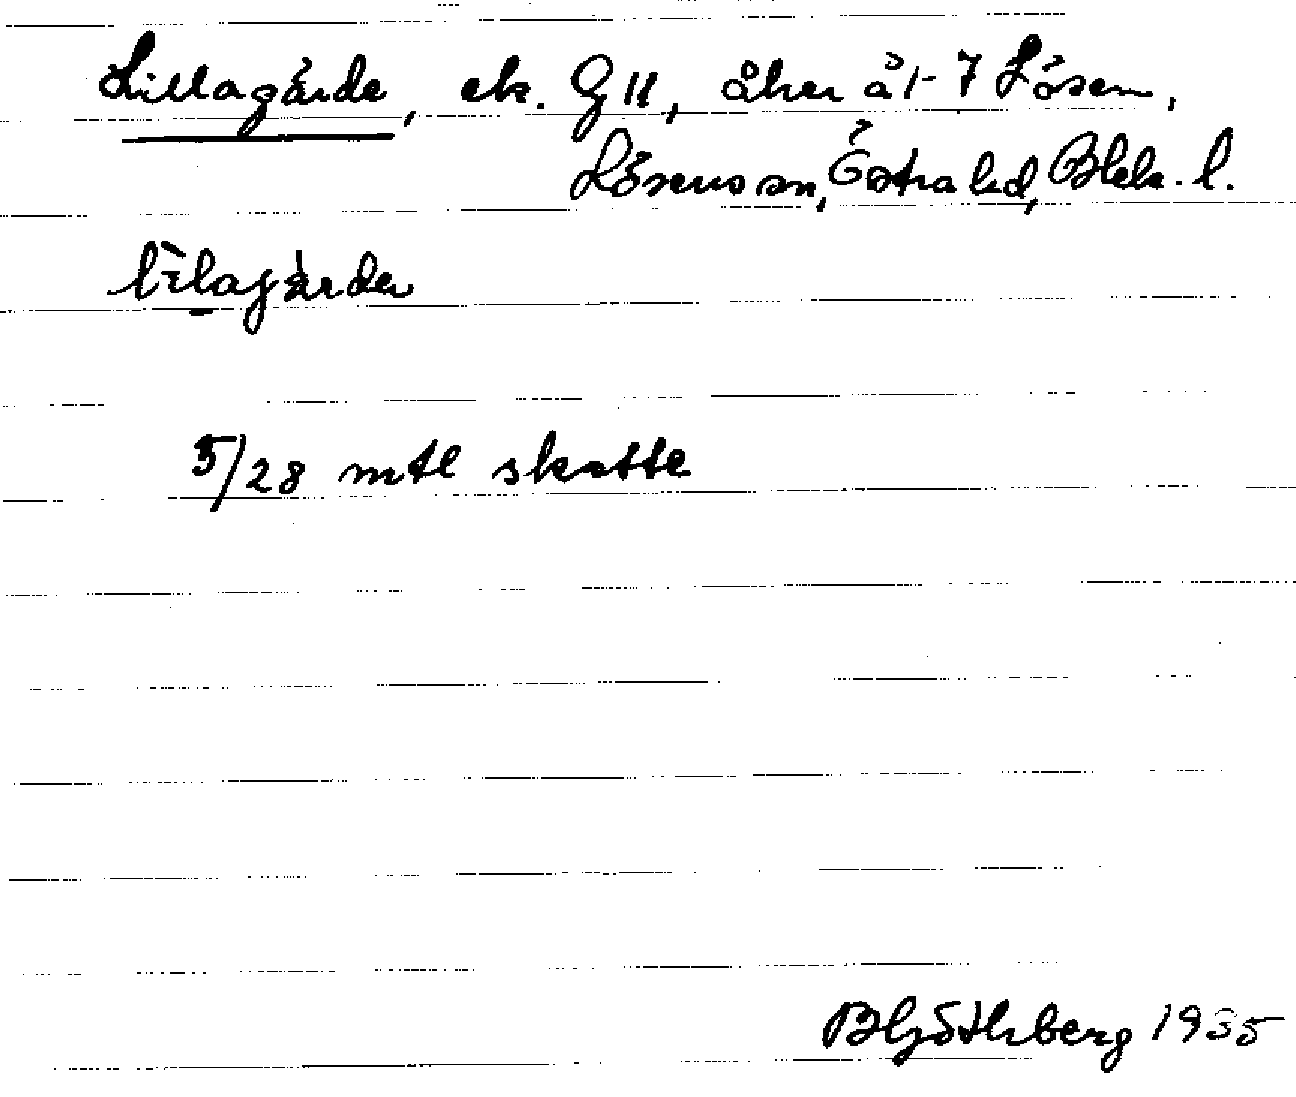 Lillagärde, ek. G 11, åker å 1-7 Lösen,
Lösens sn, Östra hd,Blek. l.
lilagàrden
5/28 mtl skatte
B Göthberg 1935